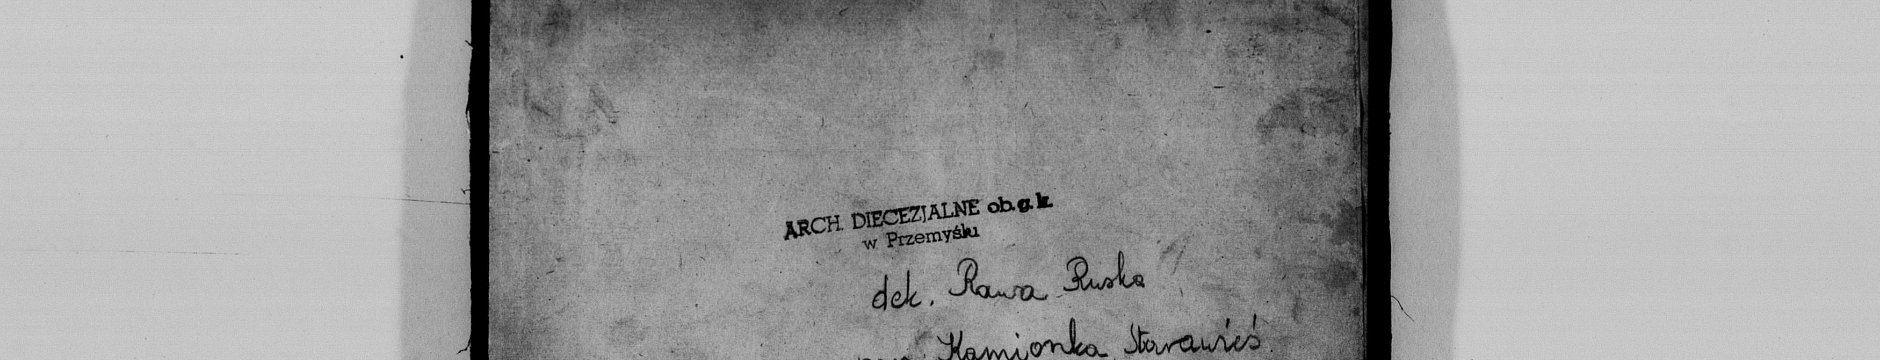 ARCH. DIECEZJALNE ob.g.k.
w Przemyślu
dek. Rawa Ruska
Kamionka Starawieś